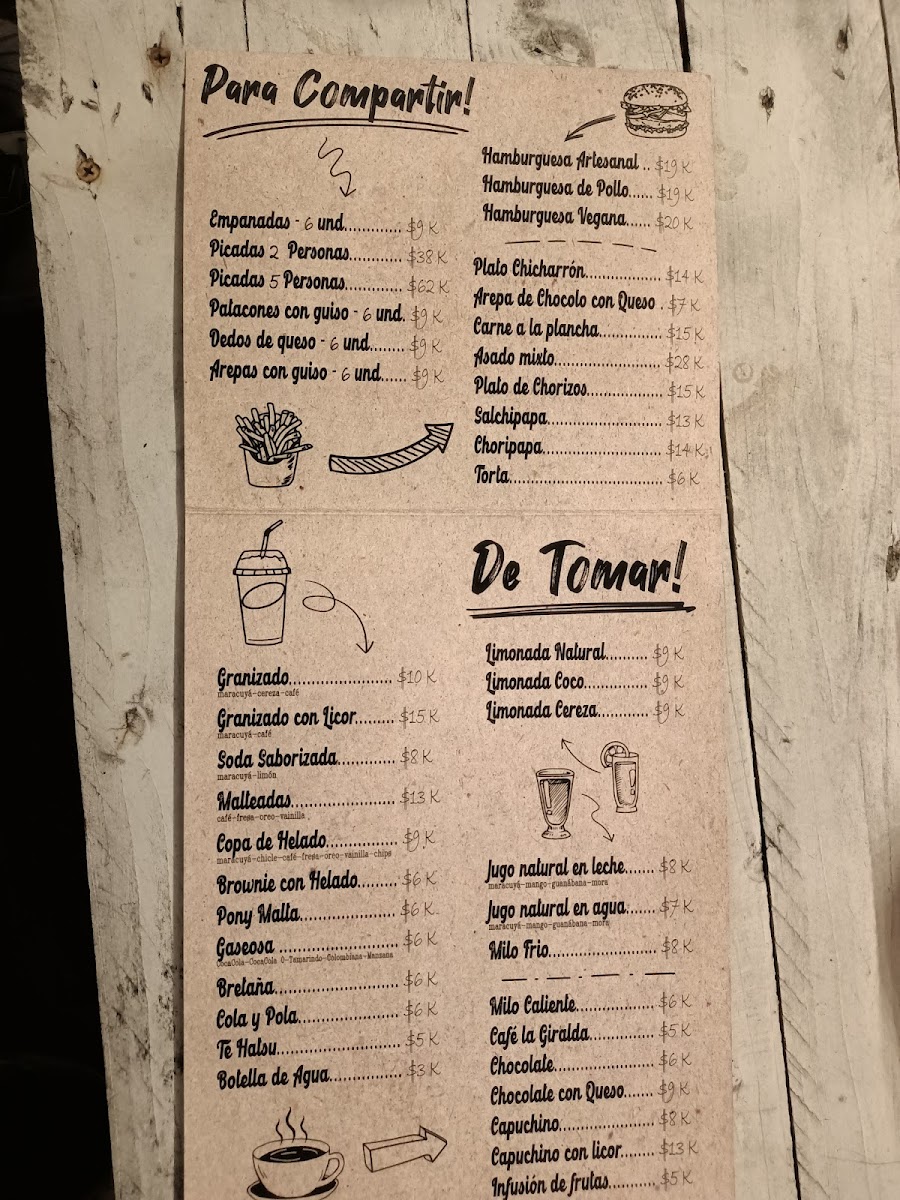 Para Compartir!
Empanadas - 6 und............. $9 K
Picadas 2 Personas............ $38 K
Picadas 5 Personas............ $62 K
Patacones con guiso - 6 und. $9 K
Dedos de queso - 6 und........ $9 K
Arepas con guiso - 6 und...... $9 K
Hamburguesa Artesanal .. $19 K
Hamburguesa de Pollo...... $19 K
Hamburguesa Vegana...... $20 K
Plato Chicharrón.................. $14 K
Arepa de Chocolo con Queso . $7 K
Carne a la plancha............... $15 K
Asado mixto......................... $28 K
Plato de Chorizos.................. $15 K
Salchipapa........................... $13 K
Choripapa............................ $14 K
Torta................................... $6 K
De Tomar!
Granizado........................ $10 K
maracuyá-cereza-café
Granizado con Licor......... $15 K
maracuyá-café
Soda Saborizada............. $8 K
maracuyá-limón
Malteadas........................ $13 K
café-fresa-oreo-vainilla
Copa de Helado................ $9 K
maracuyá-chicle-café-fresa-oreo-vainilla-chips
Brownie con Helado......... $6 K
Pony Malta...................... $6 K
Gaseosa ........................... $6 K
CocaCola-CocaCola 0-Tamarindo-Colombiana-Manzana
Bretaña............................ $6 K
Cola y Pola....................... $6 K
Té Hatsu............................ $5 K
Botella de Agua................. $3 K
Limonada Natural.......... $9 K
Limonada Coco............... $9 K
Limonada Cereza............ $9 K
Jugo natural en leche....... $8 K
maracuyá-mango-guanábana-mora
Jugo natural en agua....... $7 K
maracuyá-mango-guanábana-mora
Milo Frio......................... $8 K
Milo Caliente................... $6 K
Café la Giralda............... $5 K
Chocolate........................ $6 K
Chocolate con Queso....... $9 K
Capuchino....................... $8 K
Capuchino con licor........ $13 K
Infusión de frutas........... $5 K